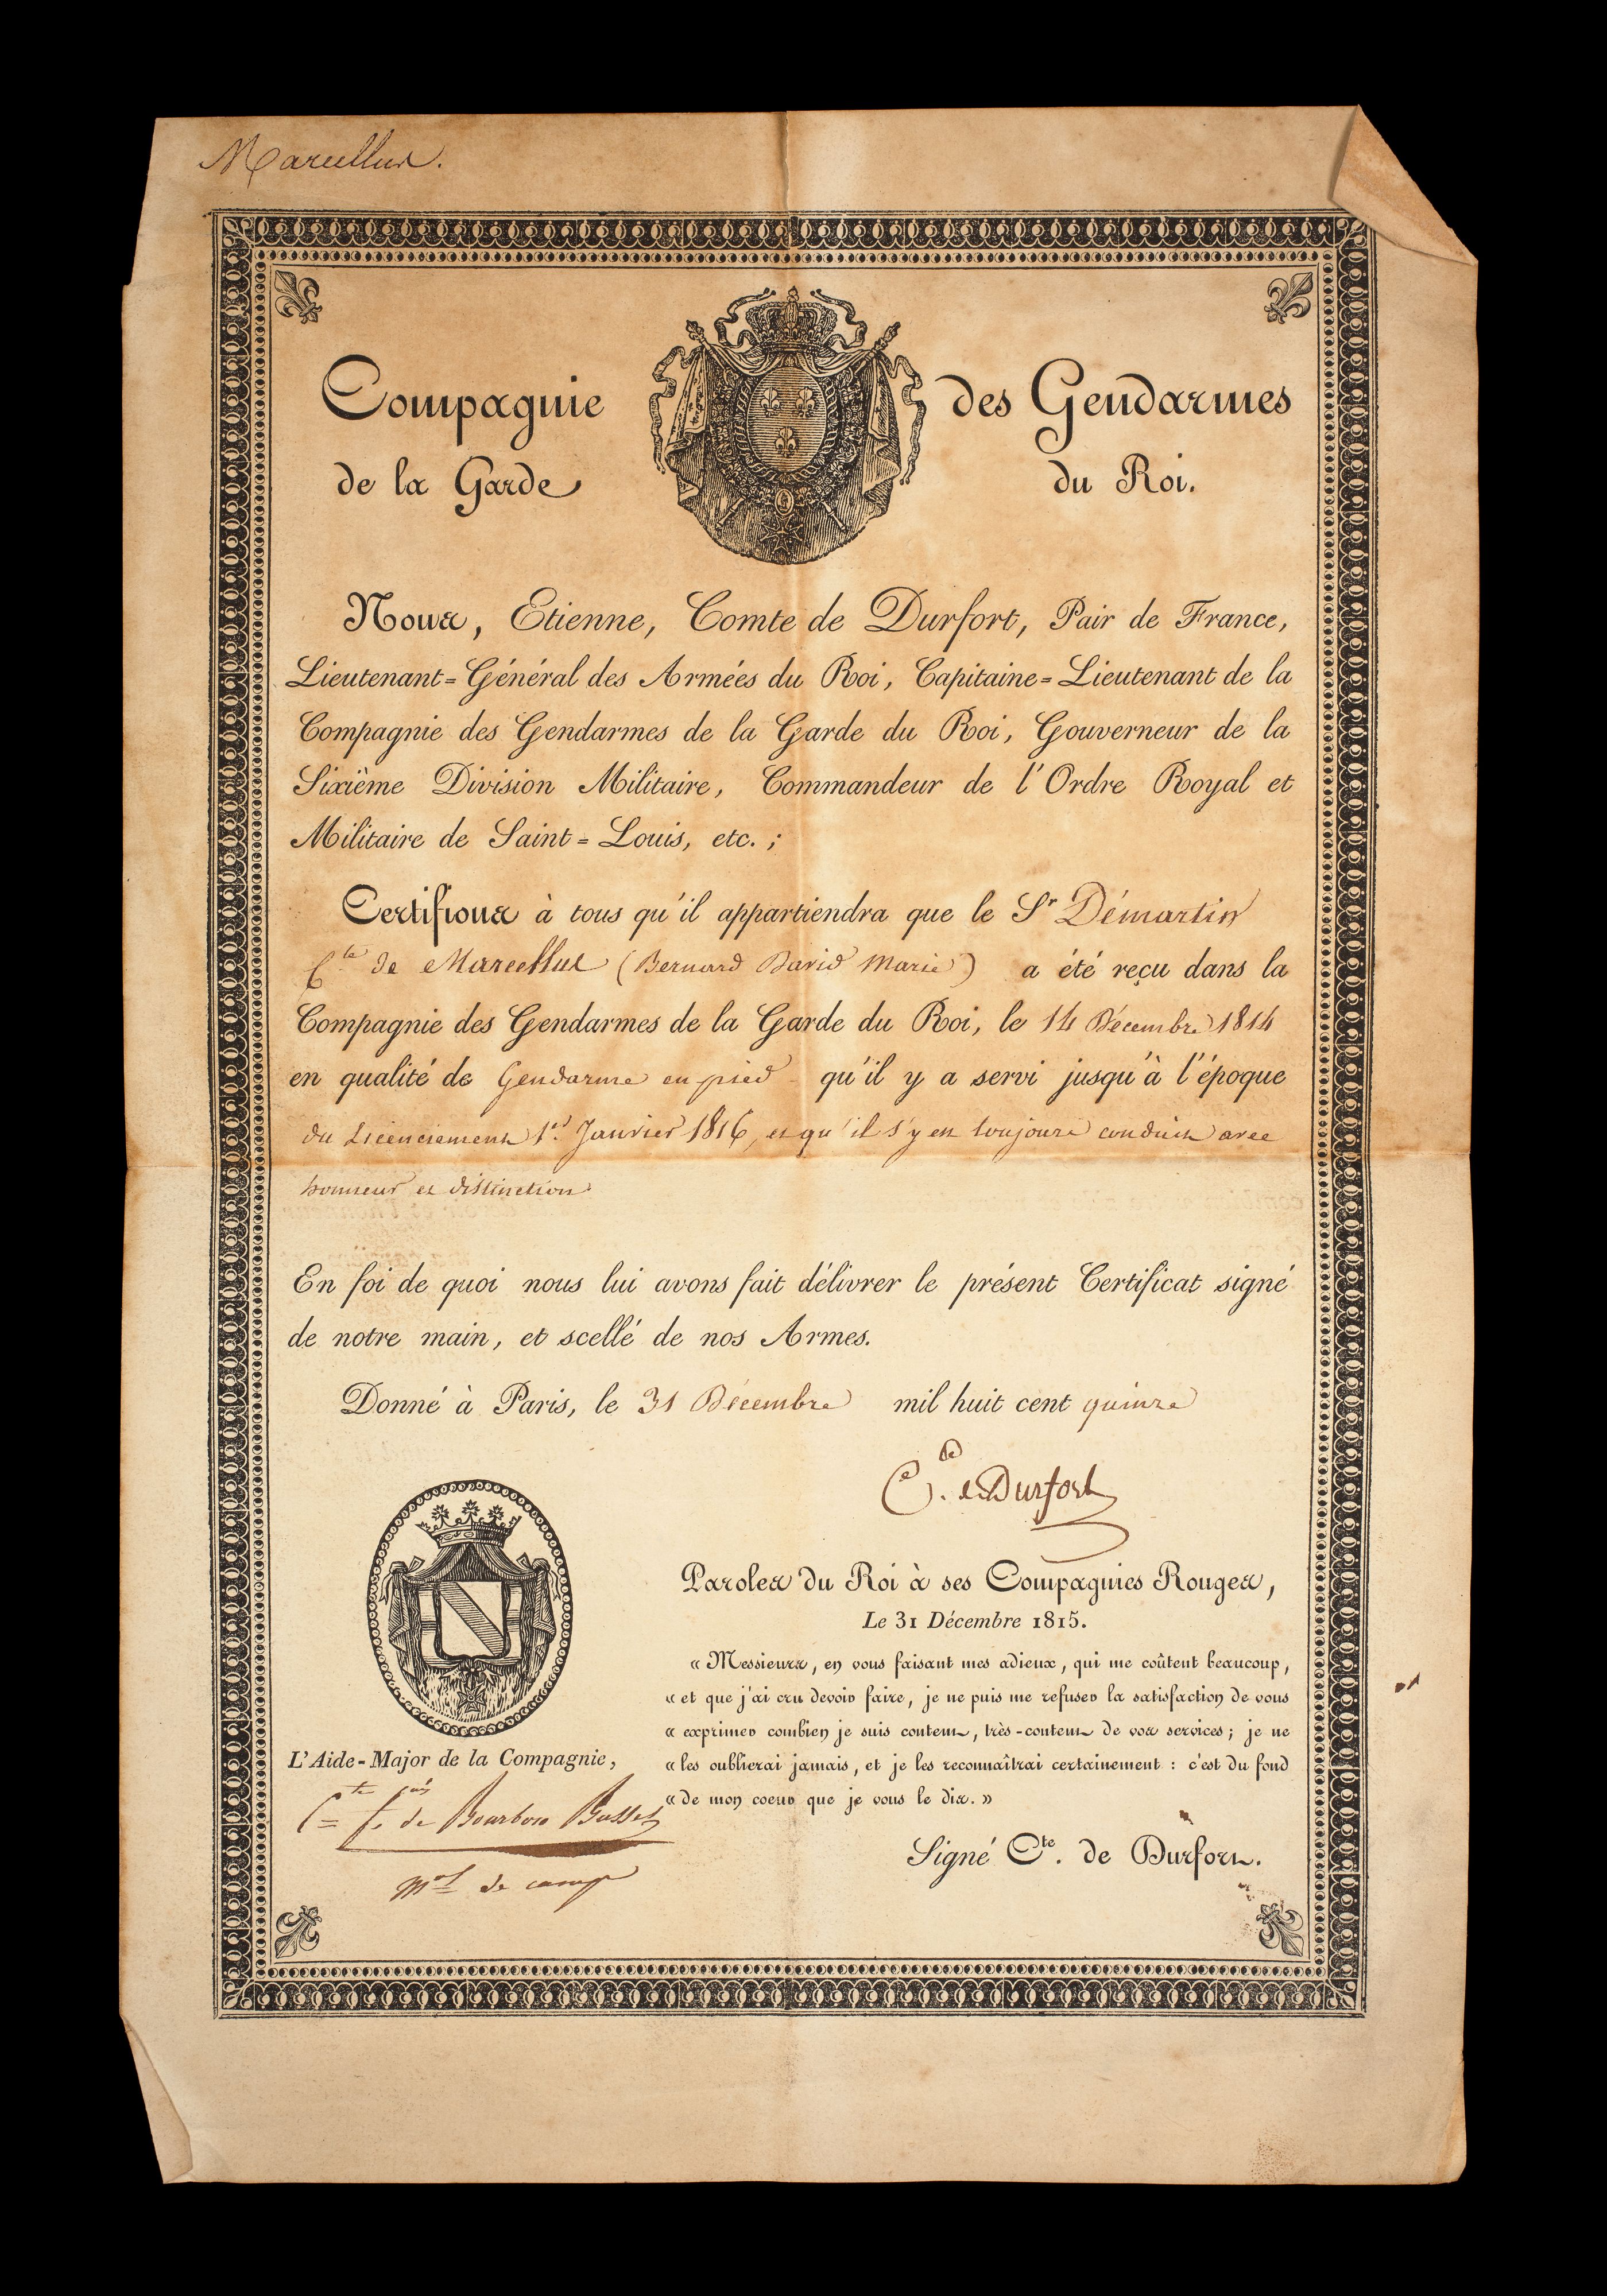 Marcellus.
Compagnie des Gendarmes
de la Garde du Roi.
Nous, Etienne, Comte de Durfort, Pair de France,
Lieutenant=Général des Armées du Roi, Capitaine=Lieutenant de la
Compagnie des Gendarmes de la Garde du Roi, Gouverneur de la
Sixième Division Militaire, Commandeur de l'Ordre Royal et
Militaire de Saint=Louis, etc.;
Certifions à tous qu'il appartiendra que le Sr Démartin
Cte de Marcellus (Bernard David Marie) a été reçu dans la
Compagnie des Gendarmes de la Garde du Roi, le 14 Décembre 1814
en qualité de Gendarme en pied qu'il y a servi jusqu'à l'époque
du Licenciement 1er Janvier 1816, et qu'il s'y est toujours conduit avec
honneur et distinction
En foi de quoi nous lui avons fait délivrer le présent Certificat signé
de notre main, et scellé de nos Armes.
Donné à Paris, le 31 Décembre mil huit cent quinze
Cte de Durfort
Paroles du Roi à ses Compagnies Rouges,
Le 31 Décembre 1815.
« Messieurs, en vous faisant mes adieux, qui me coûtent beaucoup,
« et que j'ai cru devoir faire, je ne puis me refuser la satisfaction de vous
« exprimer combien je suis content, très-content de vos services; je ne
« les oublierai jamais, et je les reconnaîtrai certainement : c'est du fond
« de mon coeur que je vous le dis. »
Signé Cte. de Durfort.
L'Aide-Major de la Compagnie,
Cte fçois de Bourbon Busset
Mal de camp